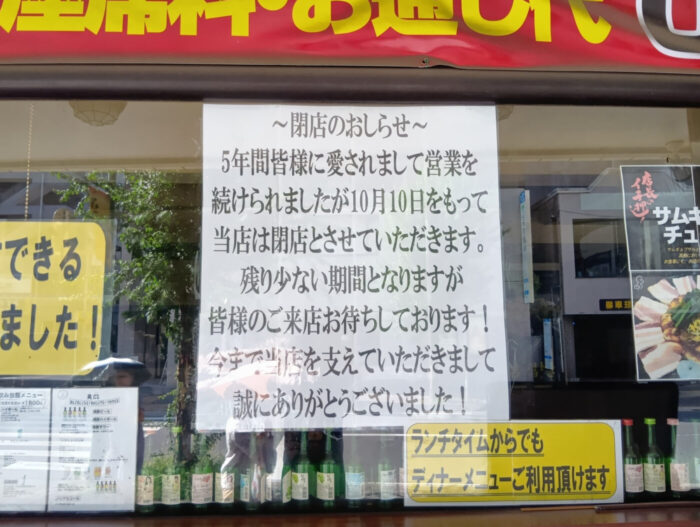 座席料・お通し代
～閉店のおしらせ～
5年間皆様に愛されまして営業を
続けられましたが10月10日をもって
当店は閉店とさせていただきます。
残り少ない期間となりますが
皆様のご来店お待ちしております！
今まで当店を支えていただきまして
誠にありがとうございました！
できる
ました！
店長
イチ押し
サムギ
チュ
ランチタイムからでも
ディナーメニューご利用頂けます